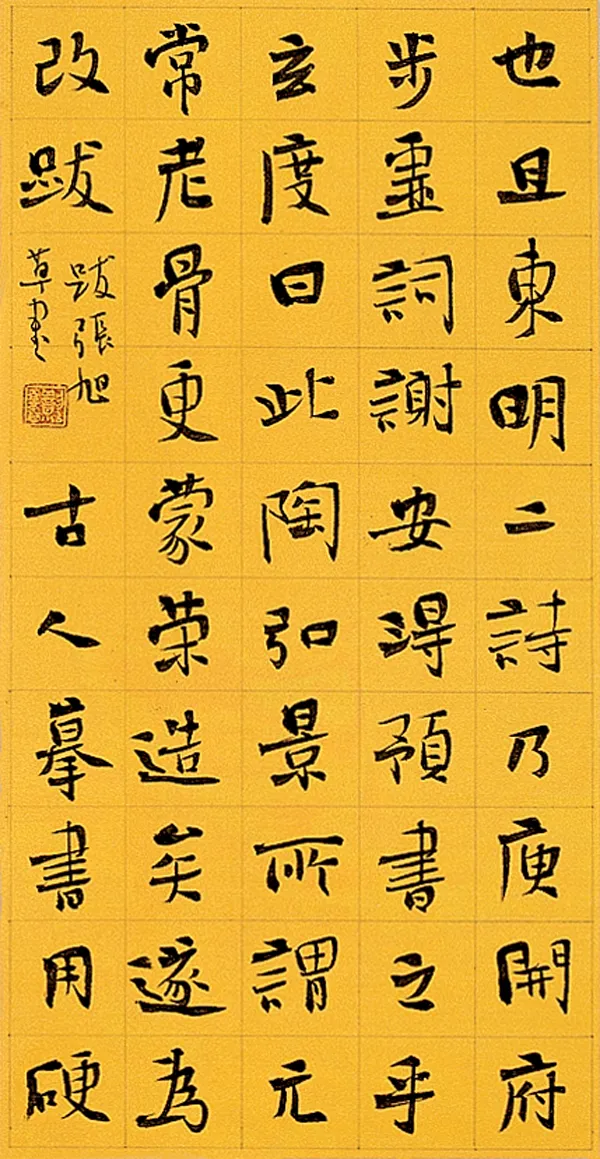 也且東明二詩乃庾開府
步虛詞謝安得預書之乎
玄度曰此陶弘景所謂元
常老骨更蒙榮造矣遂為
改跋
跋張旭
草書
古人摹書用硬